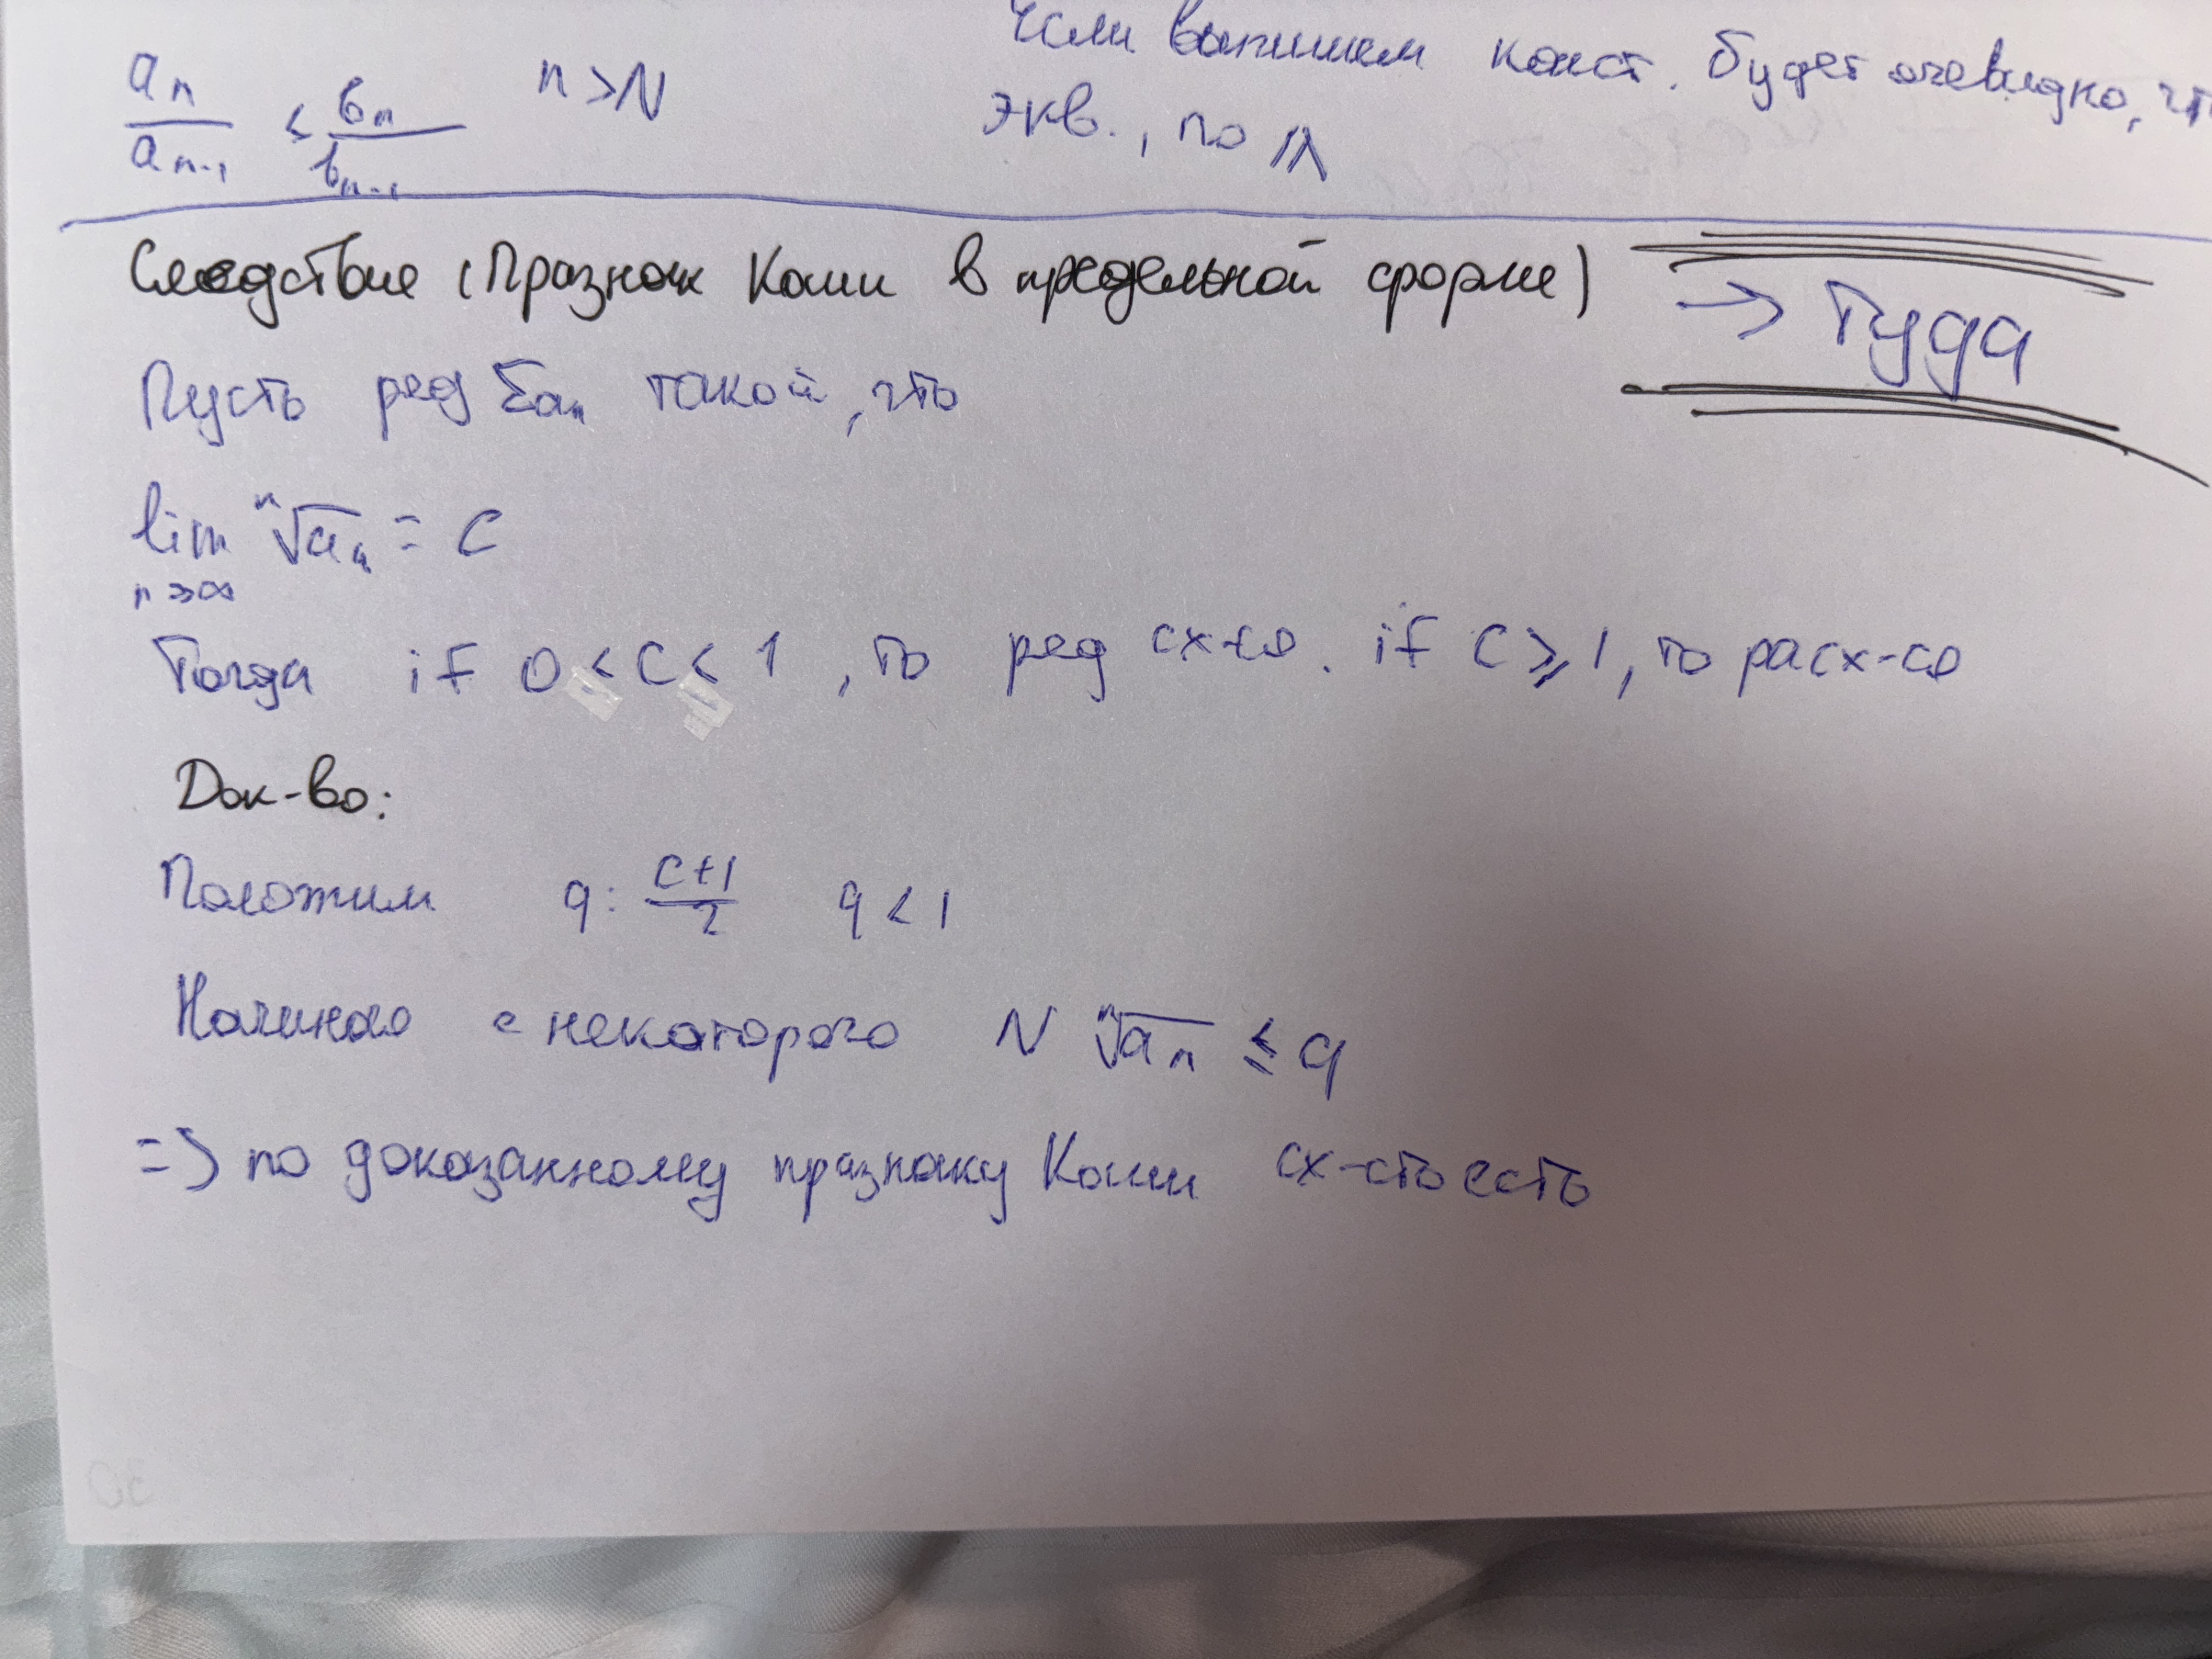 aₙ/aₙ₋₁ ≤ bₙ/bₙ₋₁ n>N
Если выпишем конст. будет очевидно, чт
экв., по
Следствие (Празнак Коши в предельной форме)
→ Туда
Пусть ряд Σaₙ такой, что
lim ⁿ√aₙ = C
n→∞
Тогда if 0 < C < 1, то ряд сх-ся. if C ⩾ 1, то расх-ся
Док-во:
Положим q: (C+1)/2 q < 1
Начиная с некоторого N ⁿ√aₙ ≤ q
=> по доказанному празнаку Коши сх-сть есть